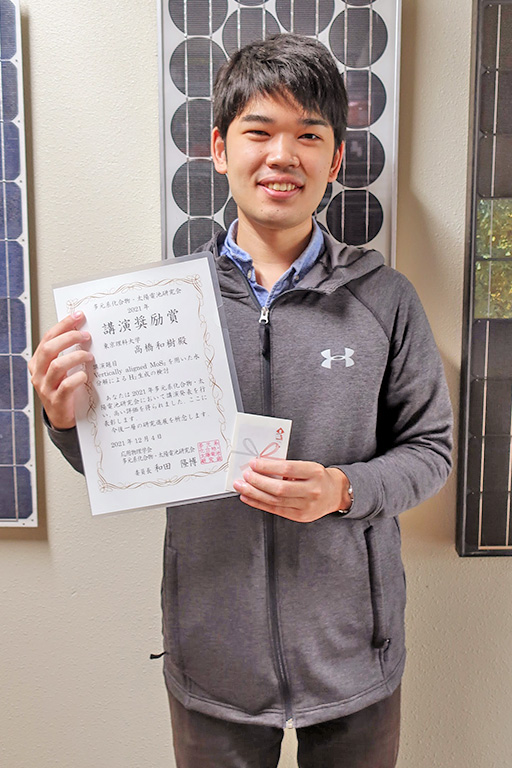 多元系化合物・太陽電池研究会
2021年
講演奨励賞
東京理科大学
高橋和樹殿
講演題目
Vertically aligned MoS₂を用いた水
分解によるH₂生成の検討
あなたは2021年多元系化合物・太
陽電池研究会において講演発表を行
い、高い評価を得られました。ここに
表彰します
今後一層の研究進展を祈念します
2021年12月4日
応用物理学会
多元系化合物・太陽電池研究会
委員長 和田 隆博